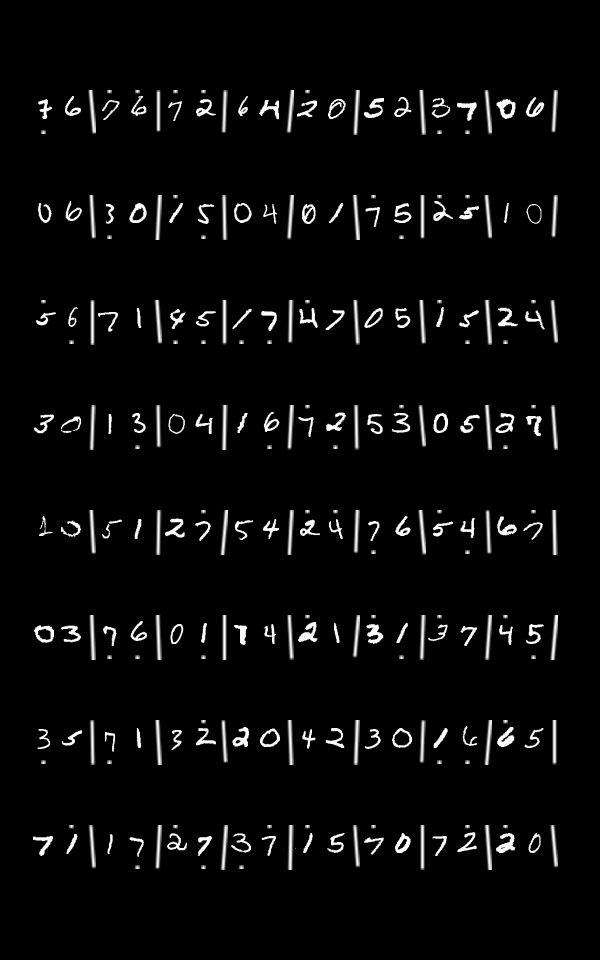 7 6 | 7 6 | 7 2 | 6 4 | 2 0 | 5 2 | 3 7 | 0 6 |
0 6 | 3 0 | 1 5 | 0 4 | 0 1 | 7 5 | 2 5 | 1 0 |
5 6 | 7 1 | 4 5 | 1 7 | 4 7 | 0 5 | 1 5 | 2 4 |
3 0 | 1 3 | 0 4 | 1 6 | 7 2 | 5 3 | 0 5 | 2 7 |
1 0 | 5 1 | 2 7 | 5 4 | 2 4 | 7 6 | 5 4 | 6 7 |
0 3 | 7 6 | 0 1 | 1 4 | 2 1 | 3 1 | 3 7 | 4 5 |
3 5 | 7 1 | 3 2 | 2 0 | 4 2 | 3 0 | 1 6 | 6 5 |
7 1 | 1 7 | 2 7 | 3 7 | 1 5 | 7 0 | 7 2 | 2 0 |